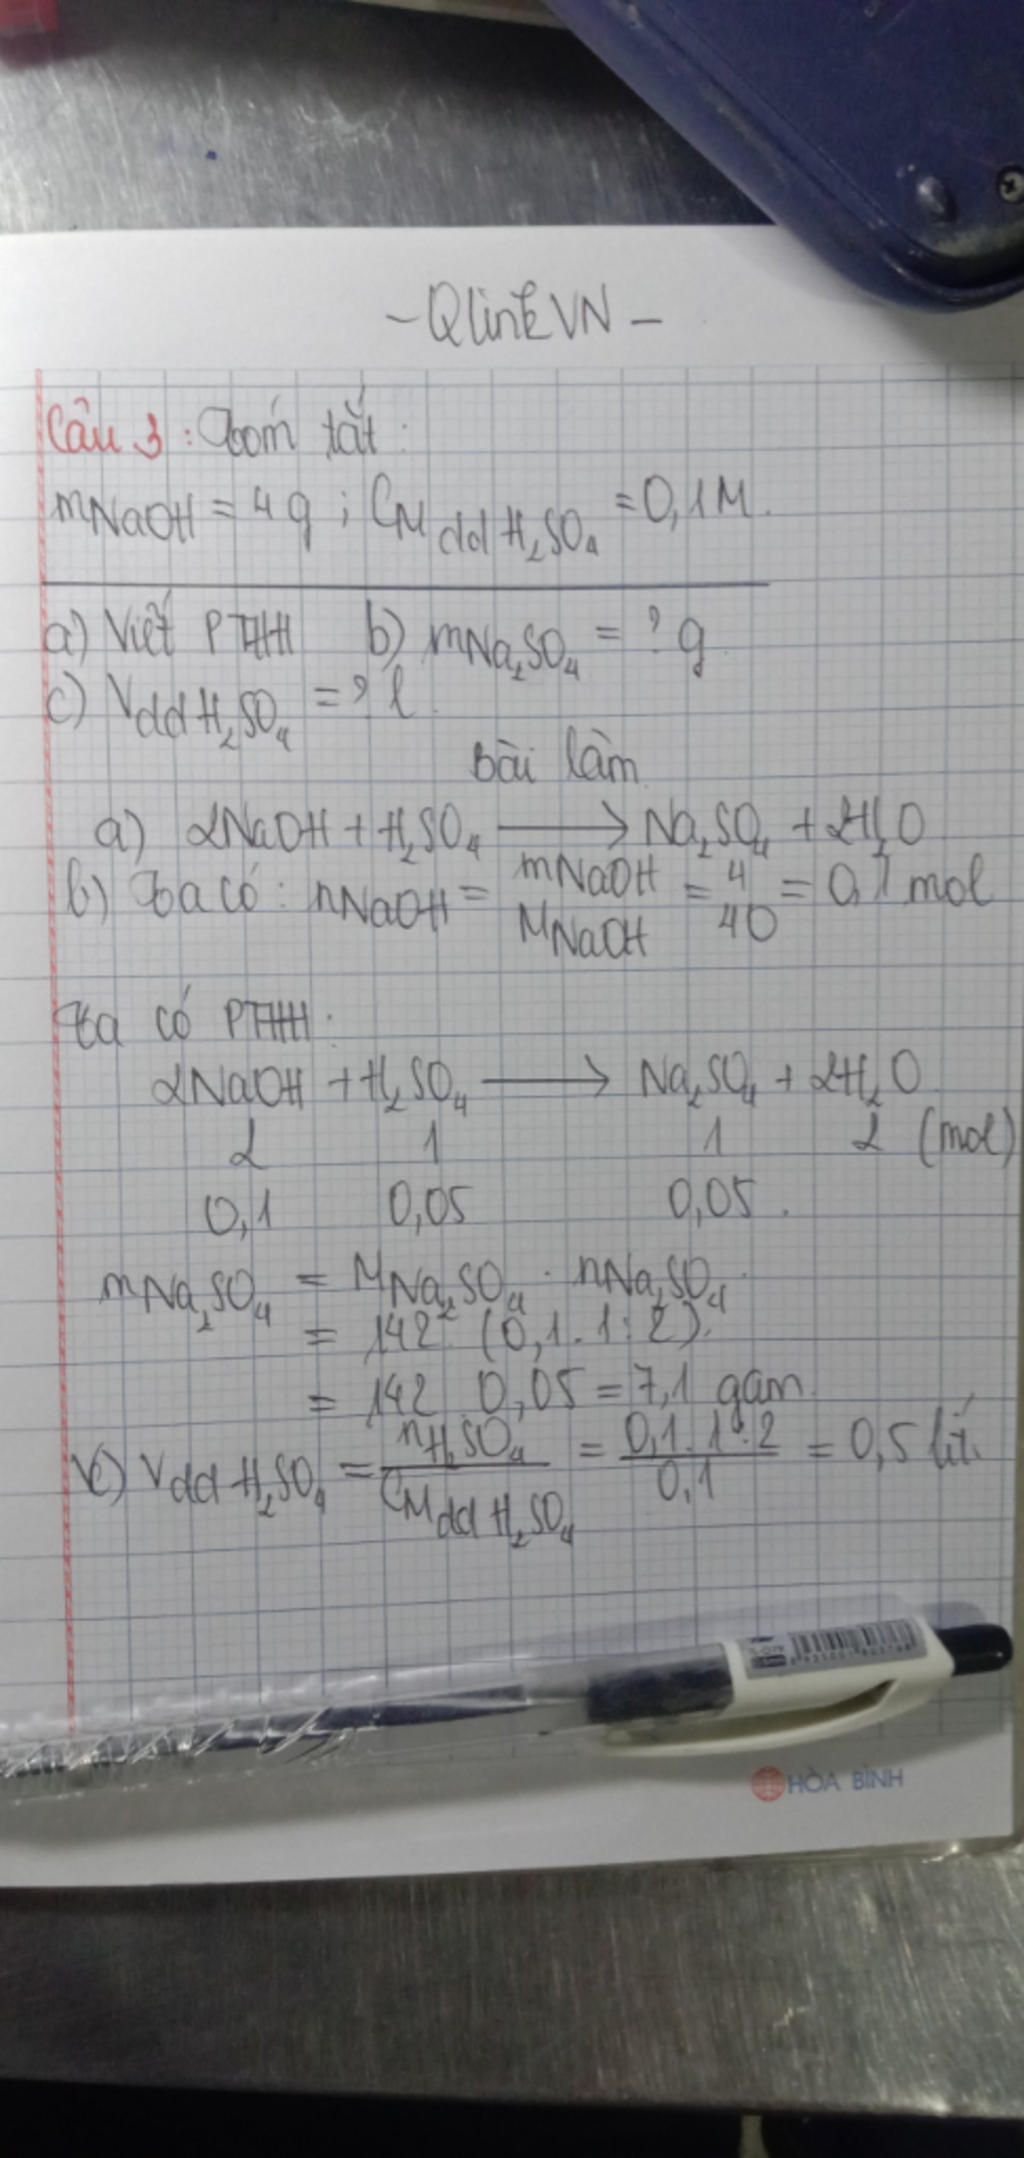 - QlinkVN -
Câu 3: Tóm tắt:
mNaOH = 4 g ; CM dd H₂SO₄ = 0,1M.
a) Viết PTHH b) mNa₂SO₄ = ? g
c) Vdd H₂SO₄ = ? l.
Bài làm
a) 2NaOH + H₂SO₄ → Na₂SO₄ + 2H₂O
b) Ta có: nNaOH = mNaOH / MNaOH = 4 / 40 = 0,1 mol
Ta có PTHH:
2NaOH + H₂SO₄ → Na₂SO₄ + 2H₂O
2 1 1 2 (mol)
0,1 0,05 0,05.
mNa₂SO₄ = MNa₂SO₄ . nNa₂SO₄.
= 142. (0,1.1:2).
= 142.0,05 = 7,1 gam.
c) Vdd H₂SO₄ = nH₂SO₄ / CM dd H₂SO₄ = 0,1.1:2 / 0,1 = 0,5 lít.
HÒA BÌNH